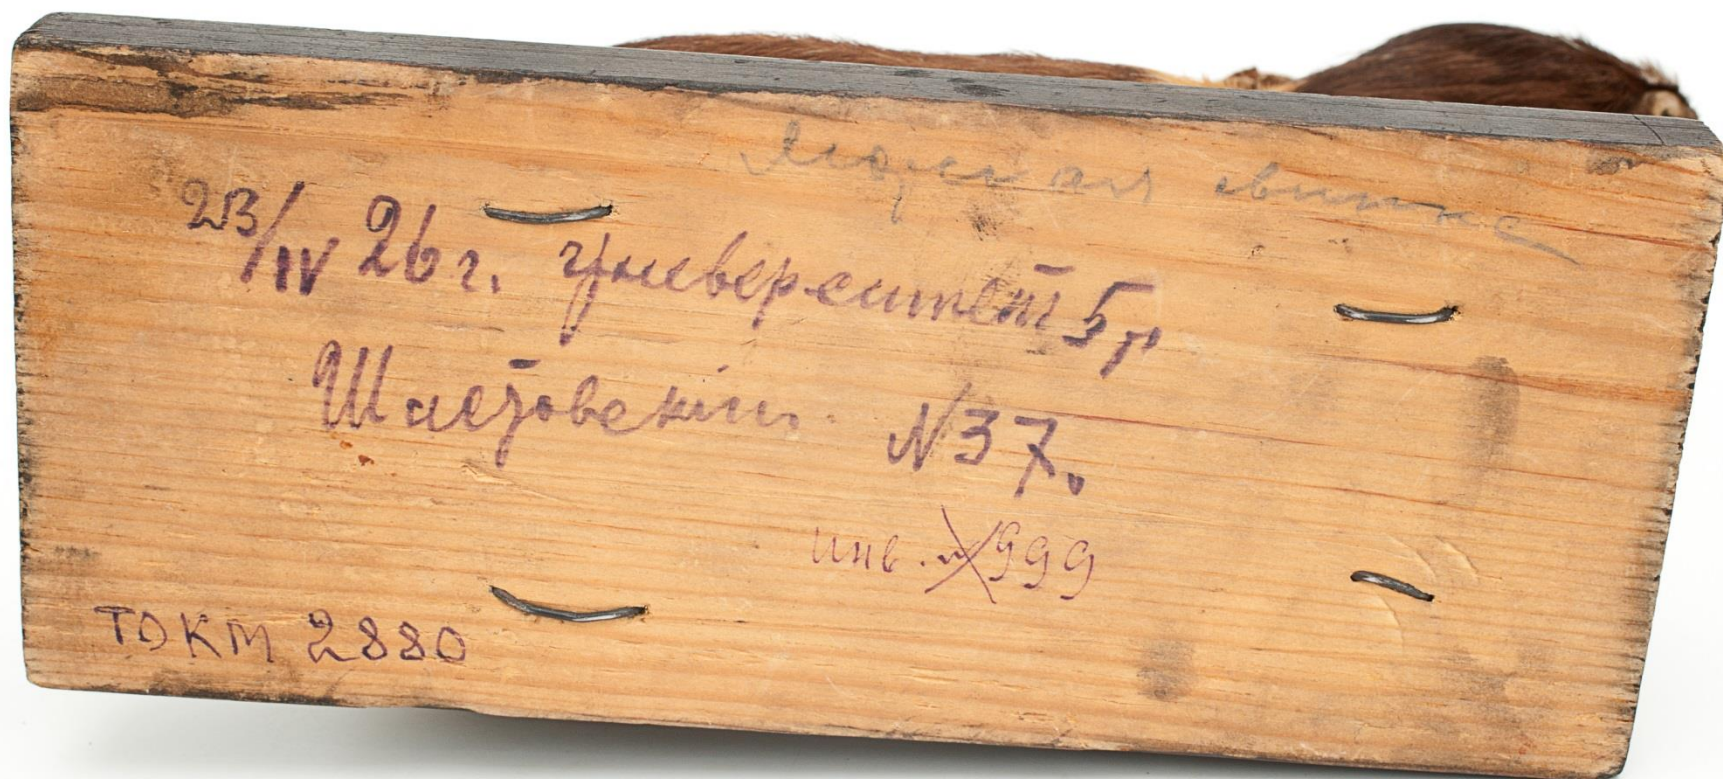 морская свинка
23/IV 26 г. университет 5 р
N 37.
инв. № 999
ТОКМ 2880